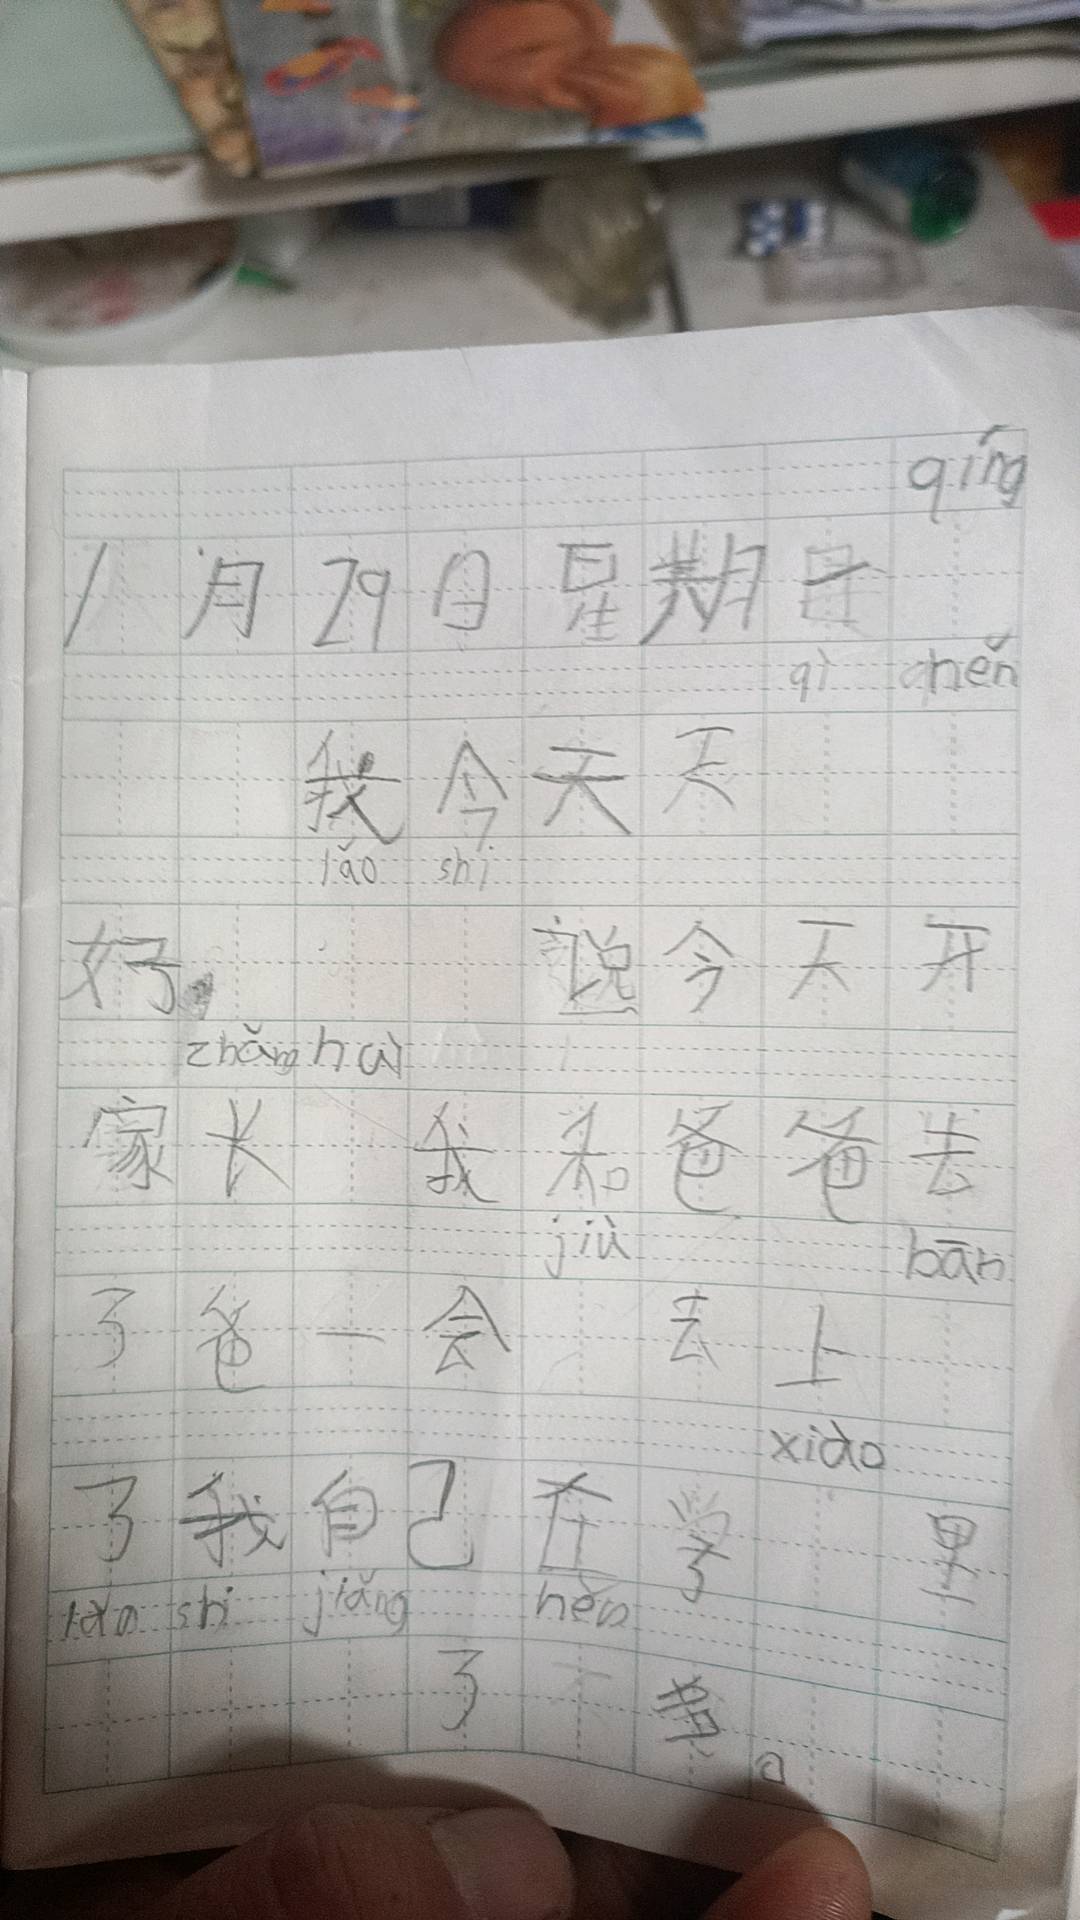 qíng
1月29日星期
qì hěn
我今天天
lǎo shi
好。说今天开
zhǎng hai
家长我和爸爸去
jiù bān
了爸一会去上
xiào
了我自己在学里
lǎo shi jiǎng hěn
了
。